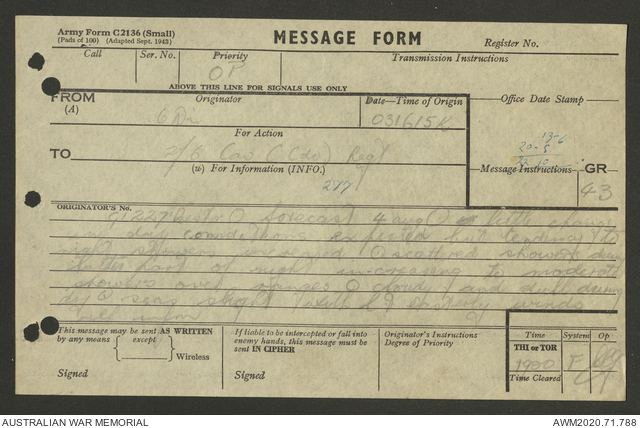 Army Form C2136 (Small)
(Pads of 100) (Adapted Sept. 1943)
MESSAGE FORM
Register No.
Call
Ser. No.
Priority
OP
Transmission Instructions
ABOVE THIS LINE FOR SIGNALS USE ONLY
FROM
(A)
Originator
6 Div
Date—Time of Origin
031615K
Office Date Stamp
For Action
TO
2/6 Cav C (do) Regt
(w) For Information (INFO.)
277
13-6
20-5
Message Instructions
GR
43
ORIGINATOR'S No.
forecast 4 aug little change
in day conditions expected but tendency to
night showers scattered showers during
latter half of night increasing to moderate
showers over ranges cloudy and dull during
day seas slight winds
This message may be sent AS WRITTEN
by any means except
Wireless
Signed
If liable to be intercepted or fall into
enemy hands, this message must be
sent IN CIPHER
Signed
Originator's Instructions
Degree of Priority
Time
System
Op
THI or TOR
1900
F
Time Cleared
AUSTRALIAN WAR MEMORIAL
AWM2020.71.788